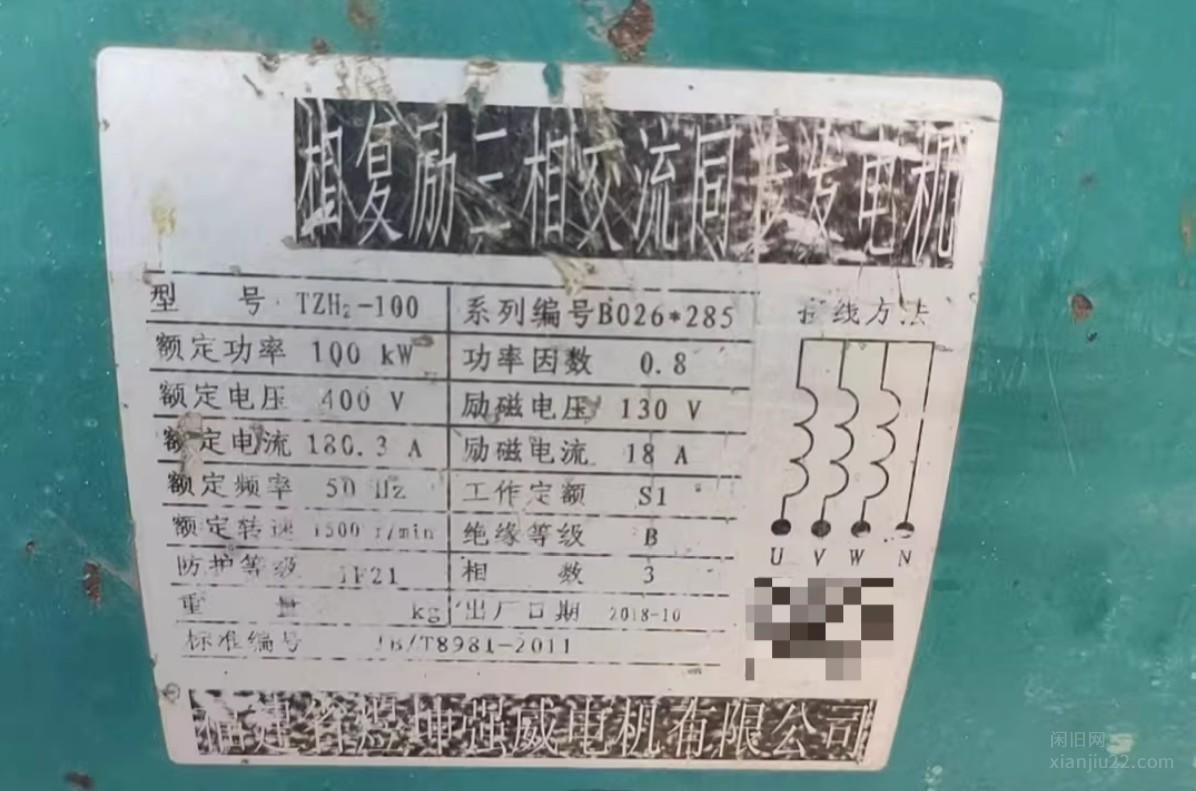 相复励三相交流同步发电机
型 号 TZH₂-100 系列编号B026*285
额定功率 100 kW 功率因数 0.8
额定电压 400 V 励磁电压 130 V
额定电流 180.3 A 励磁电流 18 A
额定频率 50 Hz 工作定额 S1
额定转速 1500 r/min 绝缘等级 B
防护等级 IP21 相 数 3
重 量 kg 出厂日期 2018-10
标准编号 JB/T8981-2011
接线方法
U V W N
福建省煜坤强威电机有限公司
闲旧网
xianjiu22.com